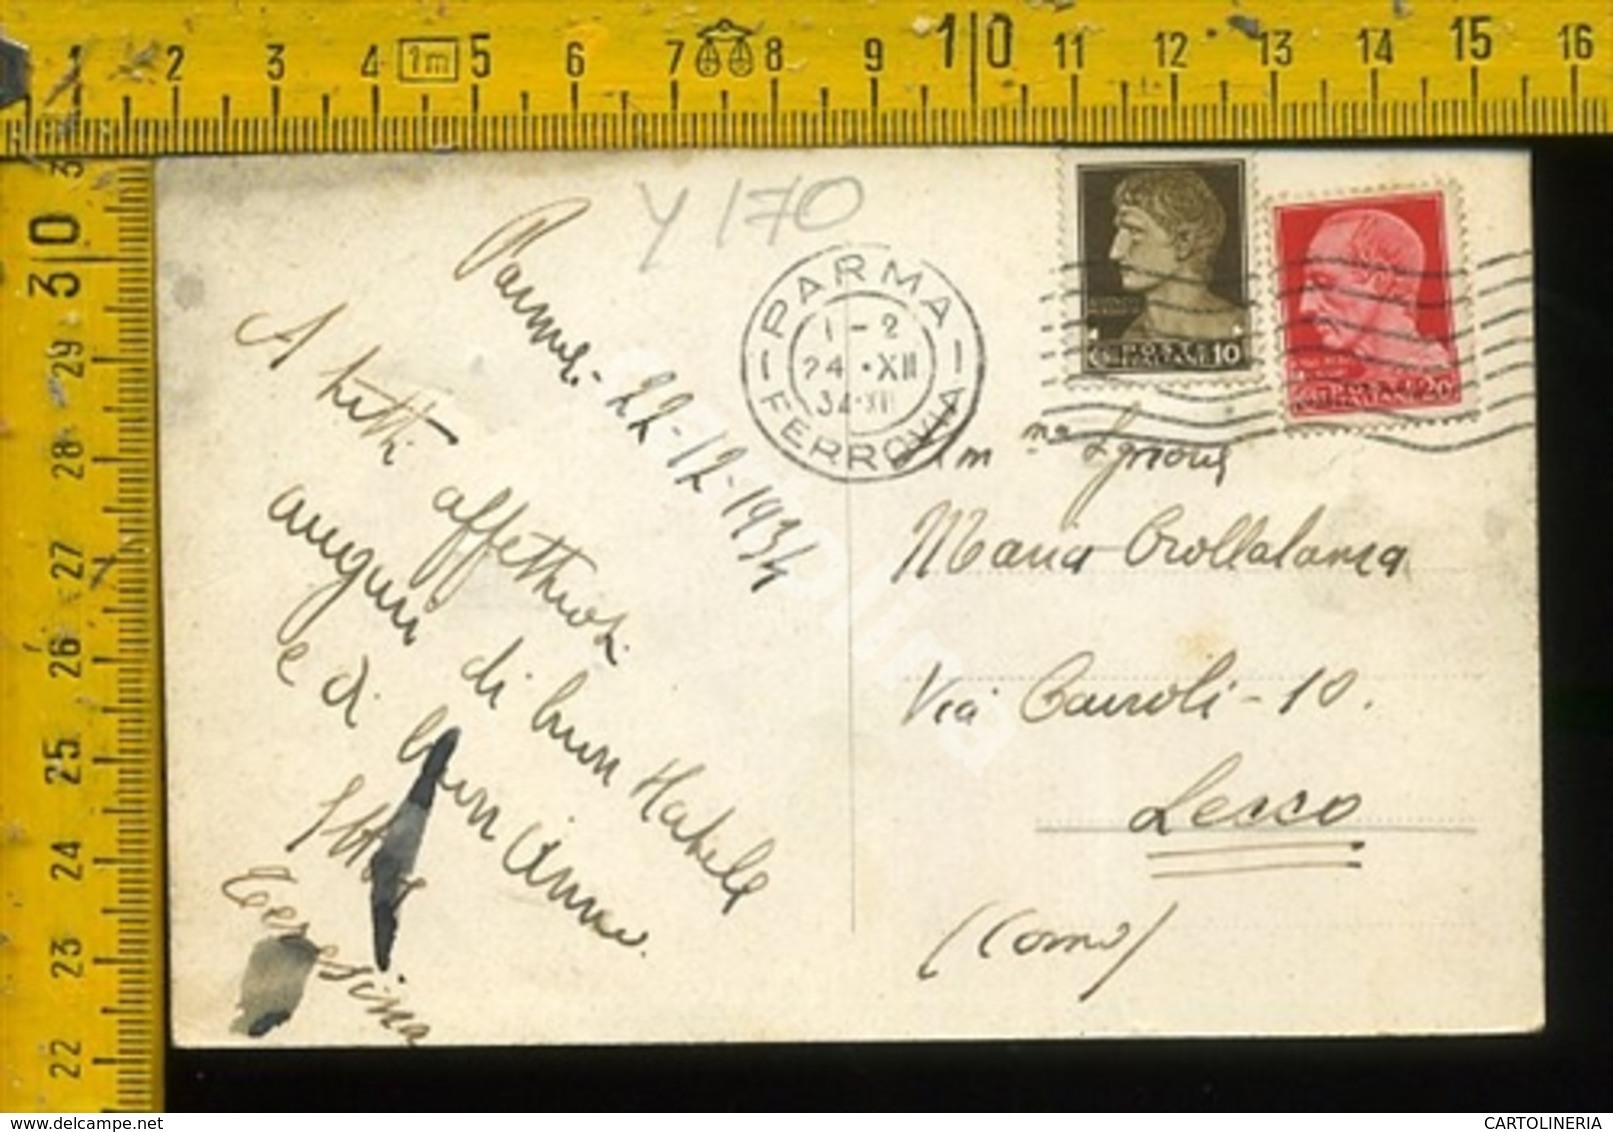 1 2 3 4 1m 5 6 7 8 9 10 11 12 13 14 15 16
30 29 28 27 26 25 24 23 22
Y 170
PARMA
1-2
24·XII
34·XIII
FERROVIA
10
20
Parma - 22-12-1934
A tutti affettuosi
auguri di buon Natale
e di buon Anno.
Teresina
Maria Crollalanza
Via Cairoli - 10.
Lecco
(Como)
www.delcampe.net
CARTOLINERIA